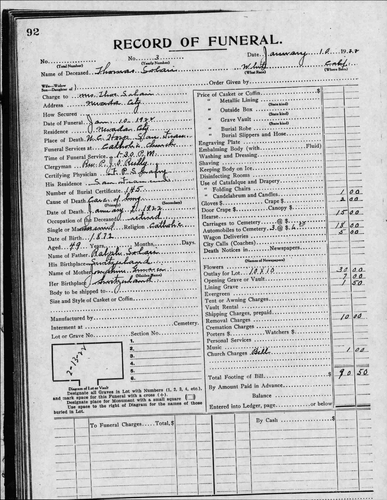 92
RECORD OF FUNERAL.
No. No. 3 Date, January 10 1922
(Total Number) (Yearly Number)
Name of Deceased Thomas White
(What Race) (Where Born)
Wife—Widow
Son—Daughter of Order Given by
Charge to Mrs. Thos.
Address Nevada City
How Secured
Date of Funeral Jan. 10 1922
Residence Nevada City
Place of Death
Funeral Services at Catholic Church
Time of Services 1:30 P.M.
Clergyman Rev.
Certifying Physician
His Residence San Francisco
Number of Burial Certificate 145
Cause of Death
Date of Death January 1922
Occupation of the Deceased retired
Single or Married Religion Catholic
Date of Birth 1872
Aged 49 Years, Months, Days.
Name of Father
His Birthplace Switzerland
Name of Mother
Her Birthplace Switzerland
Body to be shipped to
Size and Style of Casket or Coffin
Manufactured by
Interment at Cemetery.
Lot or Grave No. Section No.
1.
2.
3.
4.
5.
6.
Diagram of Lot or Vault
Designate all Graves in Lot with Numbers (1, 2, 3, 4, etc.),
and mark space for this Funeral with a cross (+).
Designate place for Monument with a small square
Use space to right of Diagram for the names of those
buried in Lot.
Price of Casket or Coffin
" Metallic Lining
(State kind)
" Outside Box
(State kind)
" Grave Vault
(State kind)
" Burial Robe
(State kind)
" Burial Slippers and Hose
Engraving Plate
Embalming Body (with Fluid)
Washing and Dressing
Shaving
Keeping Body on Ice
Disinfecting Rooms
Use of Catafalque and Drapery
" Folding Chairs 1 00
" Candelabrum and Candles
Gloves $ Crape $ 2 00
Door Crape $ Canopy $
Hearse 15 00
Carriages to Cemetery @ $
Automobiles to Cemetery 3 @ $ 6 18 00
Wagon Deliveries 5 00
City Calls (Coaches)
Death Notices in Newspapers
(Names of Newspapers)
Flowers
Outlay for Lot 10x10 30 00
Opening Grave or Vault 7 00
Lining Grave 1 50
Evergreen
Tent or Awning Charges
Vault Rental
Shipping Charges, prepaid
Removal Charges 10 00
Cremation Charges
Porters $ Watchers $
Personal Services
Music
Church Charges Bell 1 00
Total Footing of Bill $ 90 50
By Amount Paid in Advance
Balance
Entered into Ledger, page or below.
To Funeral Charges, Total $ By Cash $